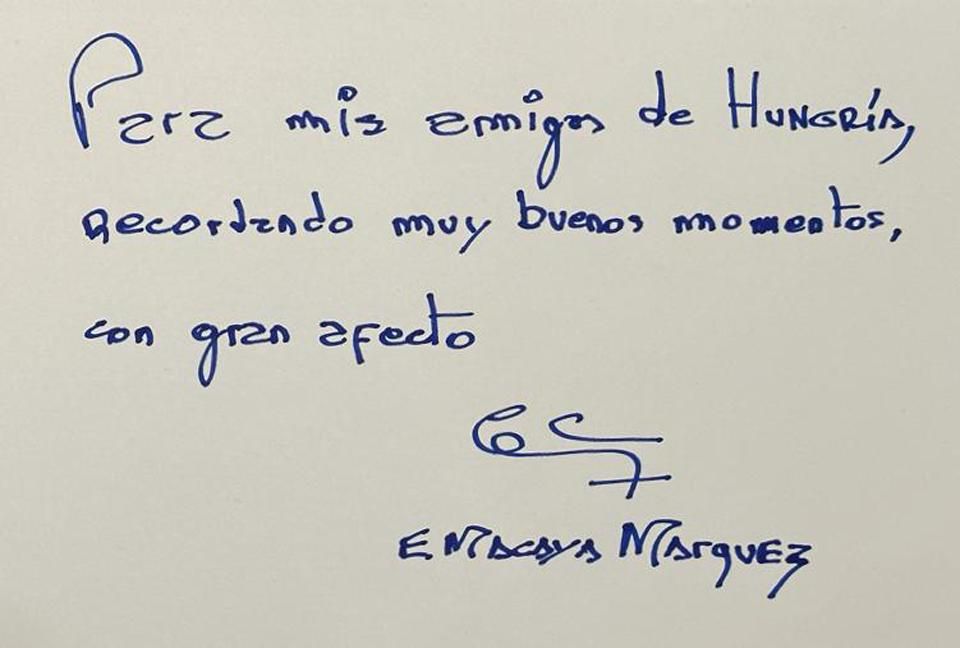 Para mis amigos de HUNGRÍA,
Recordando muy buenos momentos,
con gran afecto
E MACAYA MARQUEZ